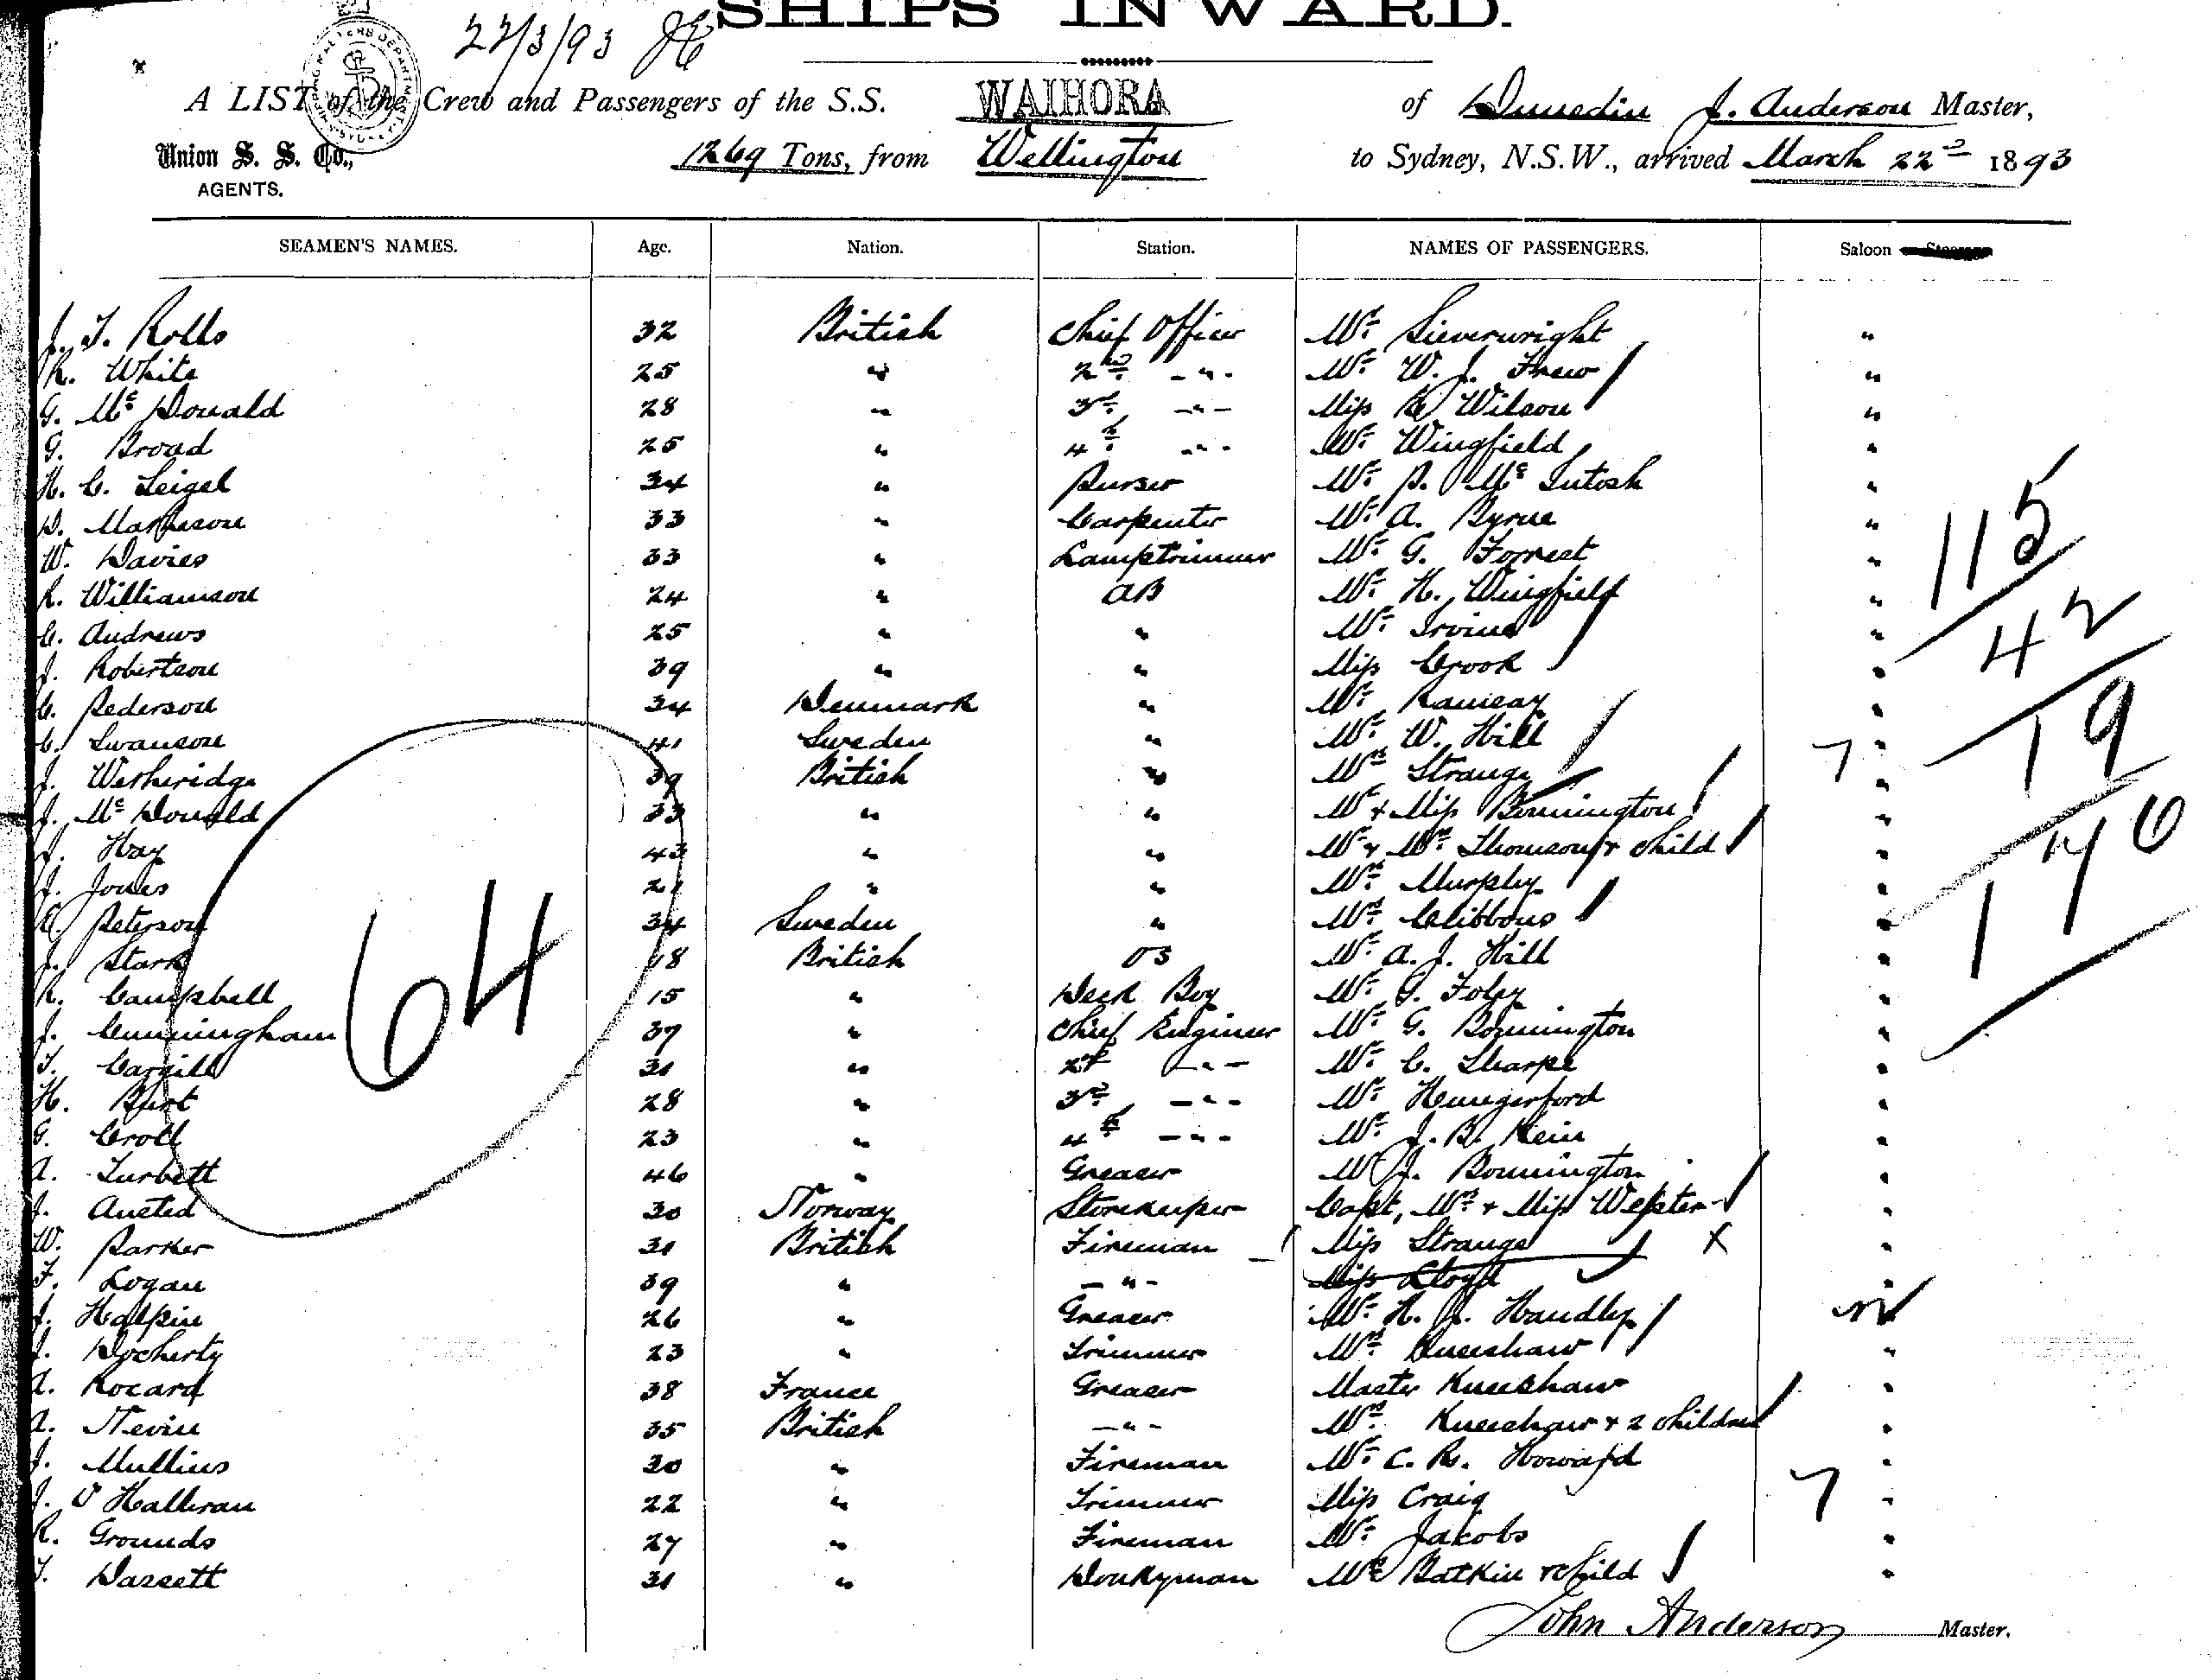 SHIPS INWARD.
22/3/93
A LIST of the Crew and Passengers of the S.S. WAIHORA of Dunedin J. Anderson Master,
Union S. S. Co., AGENTS. 1269 Tons, from Wellington to Sydney, N.S.W., arrived March 22nd 1893
SEAMEN'S NAMES. Age. Nation. Station. NAMES OF PASSENGERS. Saloon
J. T. Rolls 32 British Chief Officer Mr Sieverwright "
R. White 25 " 2nd -"- Mr W. J. Frew "
G. Mc Donald 28 " 3rd -"- Miss Wilson "
G. Broad 25 " 4th -"- Mr Wingfield "
H. C. Seigel 34 " Purser Mr P. Mc Intosh "
D. 33 " Carpenter Mr A. Byrne "
W. Davies 33 " Lamptrimmer Mr G. Forrest "
R. Williamson 24 " AB Mr H. Wingfield "
C. Andrews 25 " " Mr Irvine "
J. Robertson 39 " " Miss Crook "
C. Pederson 34 Denmark " Mr Ramsay "
C. Swanson 41 Sweden " Mr W. Hill "
J. Wetheridge 39 British " Mrs Strange "
J. Mc Donald 33 " " Mr & Miss Bonnington "
J. Hay 43 " " Mr & Mrs Thomson & Child "
J. Jones 21 " " Mrs Murphy "
Peterson 34 Sweden " Mrs Clibbons "
J. Stark 18 British OS Mr A. J. Hill "
R. Campbell 15 " Deck Boy Mr G. Foley "
J. Cunningham 37 " Chief Engineer Mr G. Bonnington "
T. Cargill 31 " 2nd -"- Mr C. Sharpe "
H. Burt 28 " 3rd -"- Mr Hungerford "
G. Croll 23 " 4th -"- Mr J. B. Keir "
A. Turbett 46 " Greaser Mr J. Bonnington "
J. Austed 30 Norway Storekeeper Capt, Mrs & Miss Webster "
W. Parker 31 British Fireman Miss Strange x "
F. Logan 39 " -"- Miss Lloyd "
J. Halpin 26 " Greaser Mr H. J. Handley
J. Docherty 23 " Trimmer Mrs Kneeshaw "
A. Rocard 38 France Greaser Master Kneeshaw "
A. Nevin 35 British -"- Mrs Kneeshaw & 2 children "
J. Mullins 30 " Fireman Mr C. R. Howard "
J. O'Halleran 22 " Trimmer Miss Craig "
R. Grounds 27 " Fireman Mr Jacobs "
T. Dassett 31 " Donkeyman Mrs Batkin & Child "
64
115
42
19
176
7
7
John Anderson Master.